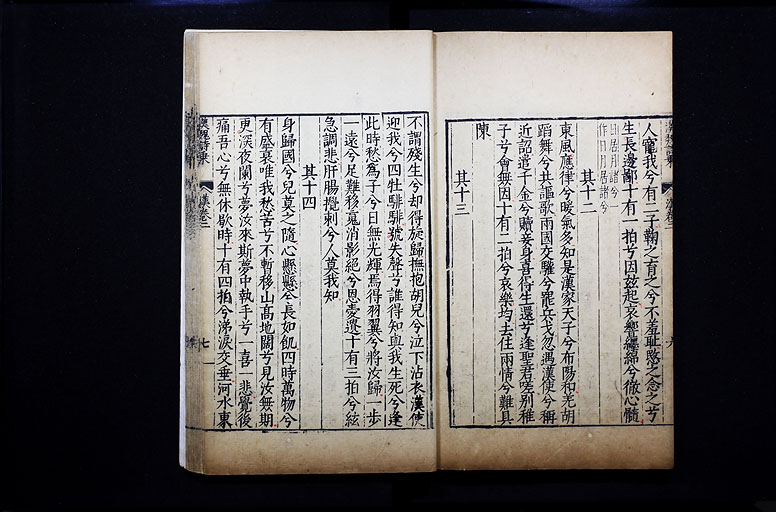 人寵我兮有二子鞠之育之兮不羞恥愍之念之兮
生長邊鄙十有一拍兮因兹起哀響纏綿兮徹心髓
日居月諸兮
作日月居諸兮
其十二
東風應律兮暖氣多知是漢家天子兮布陽和羌胡
蹈舞兮共謳歌兩國交驩兮罷兵戈忽遇漢使兮稱
近詔遣千金兮贖妾身喜得生還兮逢聖君嗟别稚
子兮會無因十有二拍兮哀樂均去住兩情兮難具
陳
其十三
不謂殘生兮却得旋歸撫抱胡兒兮泣下沾衣漢使
迎我兮四牡騑騑號失聲兮誰得知與我生死兮逢
此時愁爲子兮日無光輝焉得羽翼兮將汝歸一步
一遠兮足難移䰟消影絕兮恩愛遺十有三拍兮絃
急調悲肝腸攪刺兮人莫我知
其十四
身歸國兮兒莫之隨心懸懸兮長如飢四時萬物兮
有盛衰唯我愁苦兮不暫移山高地闊兮見汝無期
更深夜闌兮夢汝來斯夢中執手兮一喜一悲覺後
痛吾心兮無休歇時十有四拍兮涕淚交垂河水東
漢卷二
七